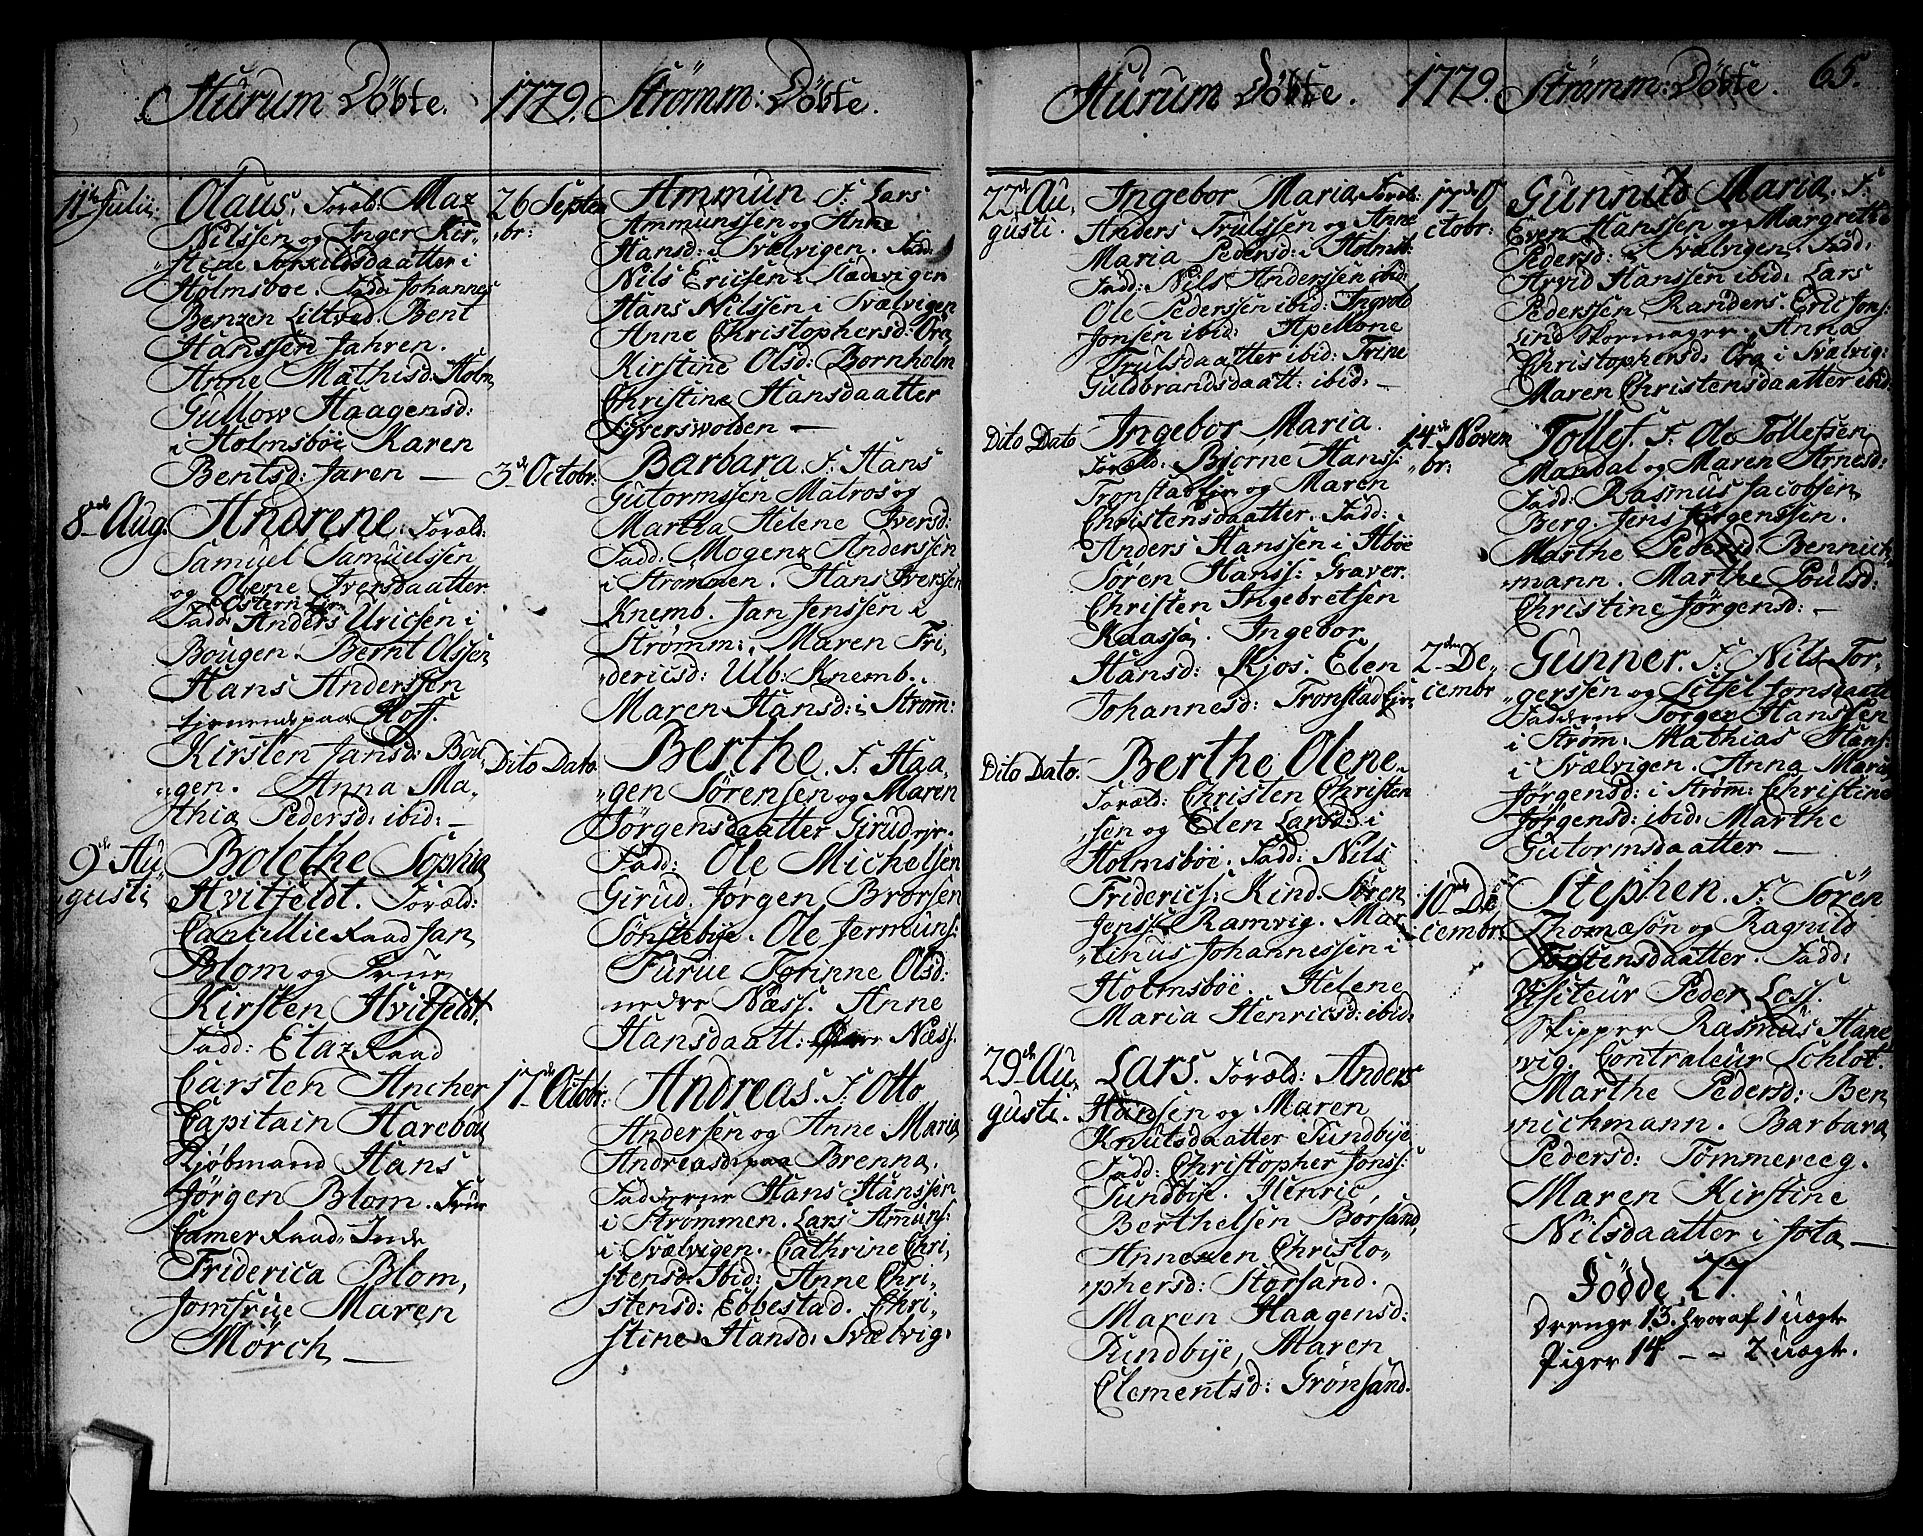 Hurum Döbte. 1779. Strømm: Döbte.
11te Julii.
Olaus. Foræl: Maz
Nilssen og Inger Kir-
stine Torkildsdaatter i
Holmsboe. Fad: Johannes
Benzen Liltved. Bent
Hanssen Jahren.
Anne Mathisd: Holm
Gullow Haagensd:
i Holmsböe Karen
Bentsd: Jaren —
8de Aug.
Andrene. Foræld:
Samuel Samuelssen
og Olene Iversdaatter
Östern Eje
Fadd: Anders Uricsen i
Bougen. Bernt Olssen
Hans Anderssen
tienende paa Roff.
Kirsten Jansd: Bou
gen. Anna Ma-
thia Pedersd: ibid: —
9de Au
gusti
Bolethe Sophia
Hvitfeldt. Foræld:
Cancellie Raad Jan
Blom og Frue
Kirsten Hvitfeldt.
Fadd: Etaz Raad
Carsten Ancher
Capitain Harebou
Kjöbmand Hans
Jörgen Blom. Frue
Camer Raad. Inde
Friderica Blom,
Jomfrue Maren
Mörch —
26 Septem
br:
Ammun F: Lars
Ammunssen og Anne
Hansd: i Svælvigen. Fad:
Nils Ericsen i Sædevigen
Hans Nilssen i Svælvigen
Anne Christophersd: Öra
Kirstine Olsd: Bornholm
Christine Hansdaatter
Syverswolden —
3de Octobr.
Barbara. F: Hans
Gutormssen Matros og
Martha Helene Iversd:
Fadd. Mogenz Anderssen
i Strømmen. Hans Iverssen
Knemb. Jan Jenssen i
Strømm: Maren Fri
dericsd: Ulb: Knemb.
Maren Hansd: i Strøm:
Dito Dato.
Berthe. F: Haa
gen Sörensen og Maren
Jörgensdaatter Girud eje.
Fadd: Ole Michelsen
Girud. Jørgen Brörsen
Sönstebye. Ole Jermuns:
Furue Torinne Olsd:
nedre Næss. Anne
Hansdaatt: Næss.
17de Octobr:
Andreas. F: Otto
Andersen og Anne Maria
Andreasd: paa Brenna.
Fadderne Hans Hanssen
i Strømmen. Lars Amuns:
i Svælvigen. Cathrine Chri
stensd: Ibid: Anne Chri
stensd: Ebbestad. Chri
stine Hansd: Svælvig:
Hurum Döbte. 1779. Strømm: Döbte. 65.
22de Au,
gusti.
Ingebor Maria. Foræl:
Anders Trulssen og Anne
Maria Pedersd: i Holmsb:
Fadd: Nils Anderssen ibid:
Ole Pederssen ibid: Ingvold
Jonsen ibid: Apellone
Trulsdaatter ibid: Trine
Guldbrandsdaatt: ibid: —
Dito Dato
Ingebor Maria.
Foræld: Biorne Hanss:
Tronstad Eje og Maren
Christensdaatter. Fadd:
Anders Hanssen i Holmsböe
Sören Hanss: Graver.
Christen Ingebretsen
Kaassa. Ingebor
Hansd: Kjos. Elen
Johannesd: Tronstad Eje
Dito Dato.
Berthe Olene.
Foræld: Christen Christen
sen og Elen Larsd: i
Holmsböe. Fadd: Nils
Friderics: Kind. Sören
Jenss: Ramvig. Mar
tinus Johannessen i
Holmsböe. Helene
Maria Henricsd: ibid:
29de Au,
gusti.
Lars. Foræld: Anders
Hansen og Maren
Knutsdaatter Tundbye
Fadd: Christopher Jonss:
Tundbye. Henric
Berthelsen Borsand,
Anne Christo
phersd: Storsand.
Maren Haagensd:
Tundbye, Maren
Clementsd: Grönsand.
17de O
ctobr:
Gunnild Maria. F:
Even Hanssen og Margrethe
Pedersd: i Svælvigen. Fadd:
Arvid Hanssen ibid: Lars
Pederssen Randers Eric Jons:
Lind Skomager. Anna
Christophersd: Öra i Svælvig:
Maren Christensdaatter ibid:
14de Novem
br:
Tollef. F: Ole Tollefsen
Mandal og Maren Arnesd:
Fadd: Rasmus Jacobsen
Berg. Jens Jørgenssen.
Marthe Pedersd: Bennich
mann. Marthe Poulsd:
Christine Jørgensd: —
2den De,
cembr
Gunner. F: Nils Tor-
gerssen og Litsel Jonsdaatt
Fadderne Torger Hanssen
i Strøm: Mathias Hans:
i Svælvigen. Anna Maria
Jörgensd: i Strøm: Christine
Jørgensd: ibid: Marthe
Gutormsdaatter —
10de De
cembr:
Stephen. F: Sören
Thomæsøn og Ragnild
Torstensdaatter. Fadd:
Visiteur Peder Loss.
Skipper Rasmus Hane
vig. Contraleur Schlot.
Marthe Pedersd: Ben
nichmann. Barbara
Pedersd: Tommereeg.
Maren Kirstine
Nilsdaatter i Jota —
Födde 27.
Drenge 13. hvoraf 1 uægte
Piger 14 - - 2 uægte.